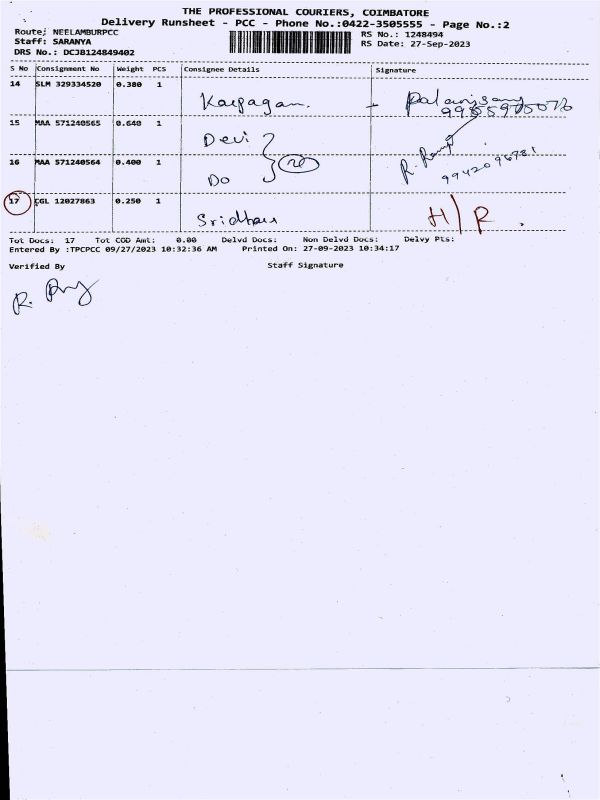 THE PROFESSIONAL COURIERS, COIMBATORE
Delivery Runsheet - PCC - Phone No.:0422-3505555 - Page No.:2
Route; NEELAMBURPCC
RS No.: 1248494
Staff: SARANYA
RS Date: 27-Sep-2023
DRS No.: DCJB124849402
S No Consignment No Weight PCS Consignee Details Signature
14 SLM 329334520 0.380 1 Karpagam
15 MAA 571240565 0.640 1 Devi
16 MAA 571240564 0.400 1 Do
9942096781
17 CGL 12027863 0.250 1 Sridhar H/R.
Tot Docs: 17 Tot COD Amt: 0.00 Delvd Docs: Non Delvd Docs: Delvy Pts:
Entered By :TPCPCC 09/27/2023 10:32:36 AM Printed On: 27-09-2023 10:34:17
Verified By Staff Signature